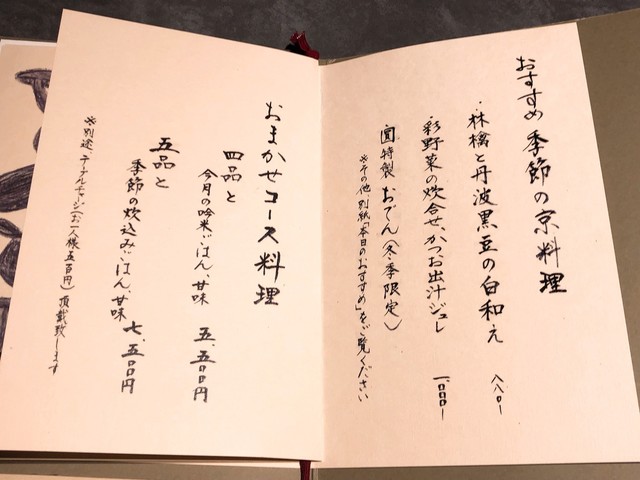 おすすめ 季節の京料理
・林檎と丹波黒豆の白和え 八八〇ー
・彩野菜の炊合せ、かつお出汁ジュレ 一、〇〇〇ー
圓特製 おでん(冬季限定)
※その他、別紙「本日のおすすめ」をご覧ください
おまかせコース料理
四品と
今月の吟米ごはん、甘味 五、五〇〇円
五品と
季節の炊込みごはん、甘味 七、五〇〇円
※別途、テーブルチャージ(お一人様五百円)頂戴致します